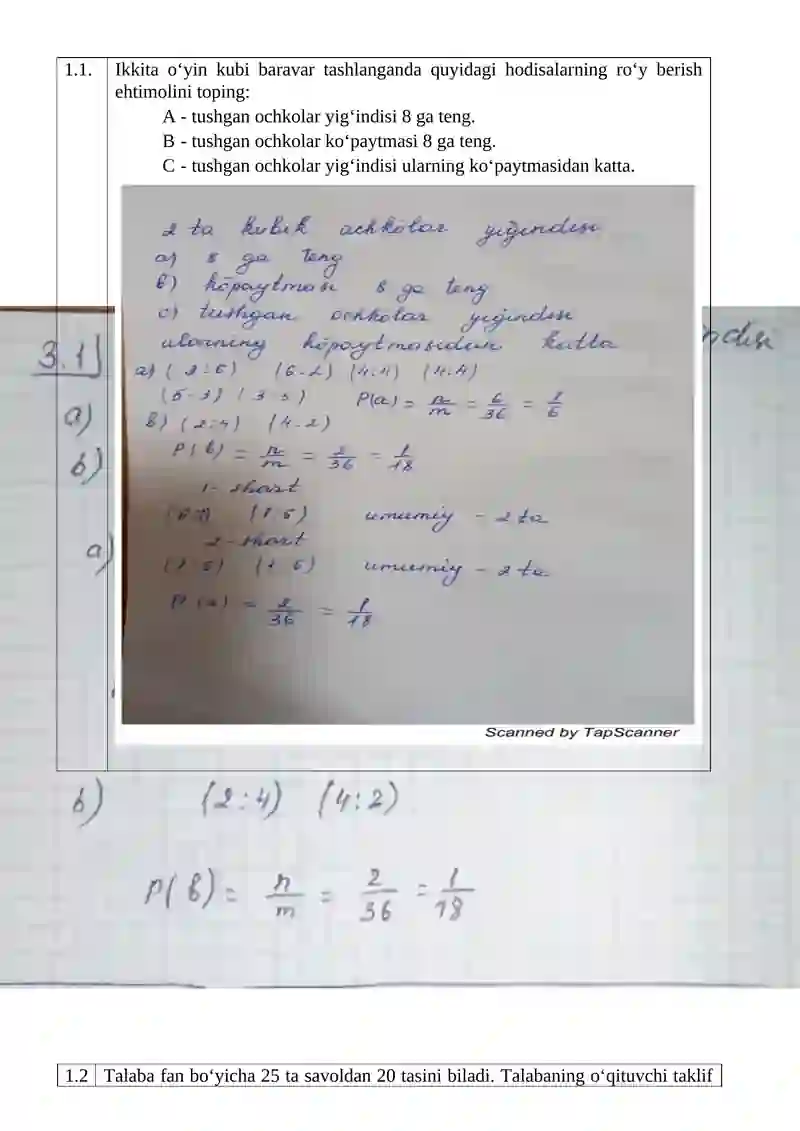 1.1. Ikkita o‘yin kubi baravar tashlanganda quyidagi hodisalarning ro‘y berish
ehtimolini toping:
A - tushgan ochkolar yig‘indisi 8 ga teng.
B - tushgan ochkolar ko‘paytmasi 8 ga teng.
C - tushgan ochkolar yig‘indisi ularning ko‘paytmasidan katta.
2 ta kubik ochkolar yig‘indisi
a) 8 ga teng
b) ko‘paytmasi 8 ga teng
c) tushgan ochkolar yig‘indisi
ularning ko‘paytmasidan katta
a) (2:6) (6-2) (4:4) (4.4)
(5-3) (3-5) P(a) = n/m = 6/36 = 1/6
b) (2:4) (4-2)
P(b) = n/m = 2/36 = 1/18
1-shart
(1:5) umumiy - 2 ta
2-shart
umumiy - 2 ta
= 2/36 = 1/18
Scanned by TapScanner
3.1
a)
b)
a)
b) (2:4) (4:2)
P(b) = n/m = 2/36 = 1/18
1.2 Talaba fan bo‘yicha 25 ta savoldan 20 tasini biladi. Talabaning o‘qituvchi taklif